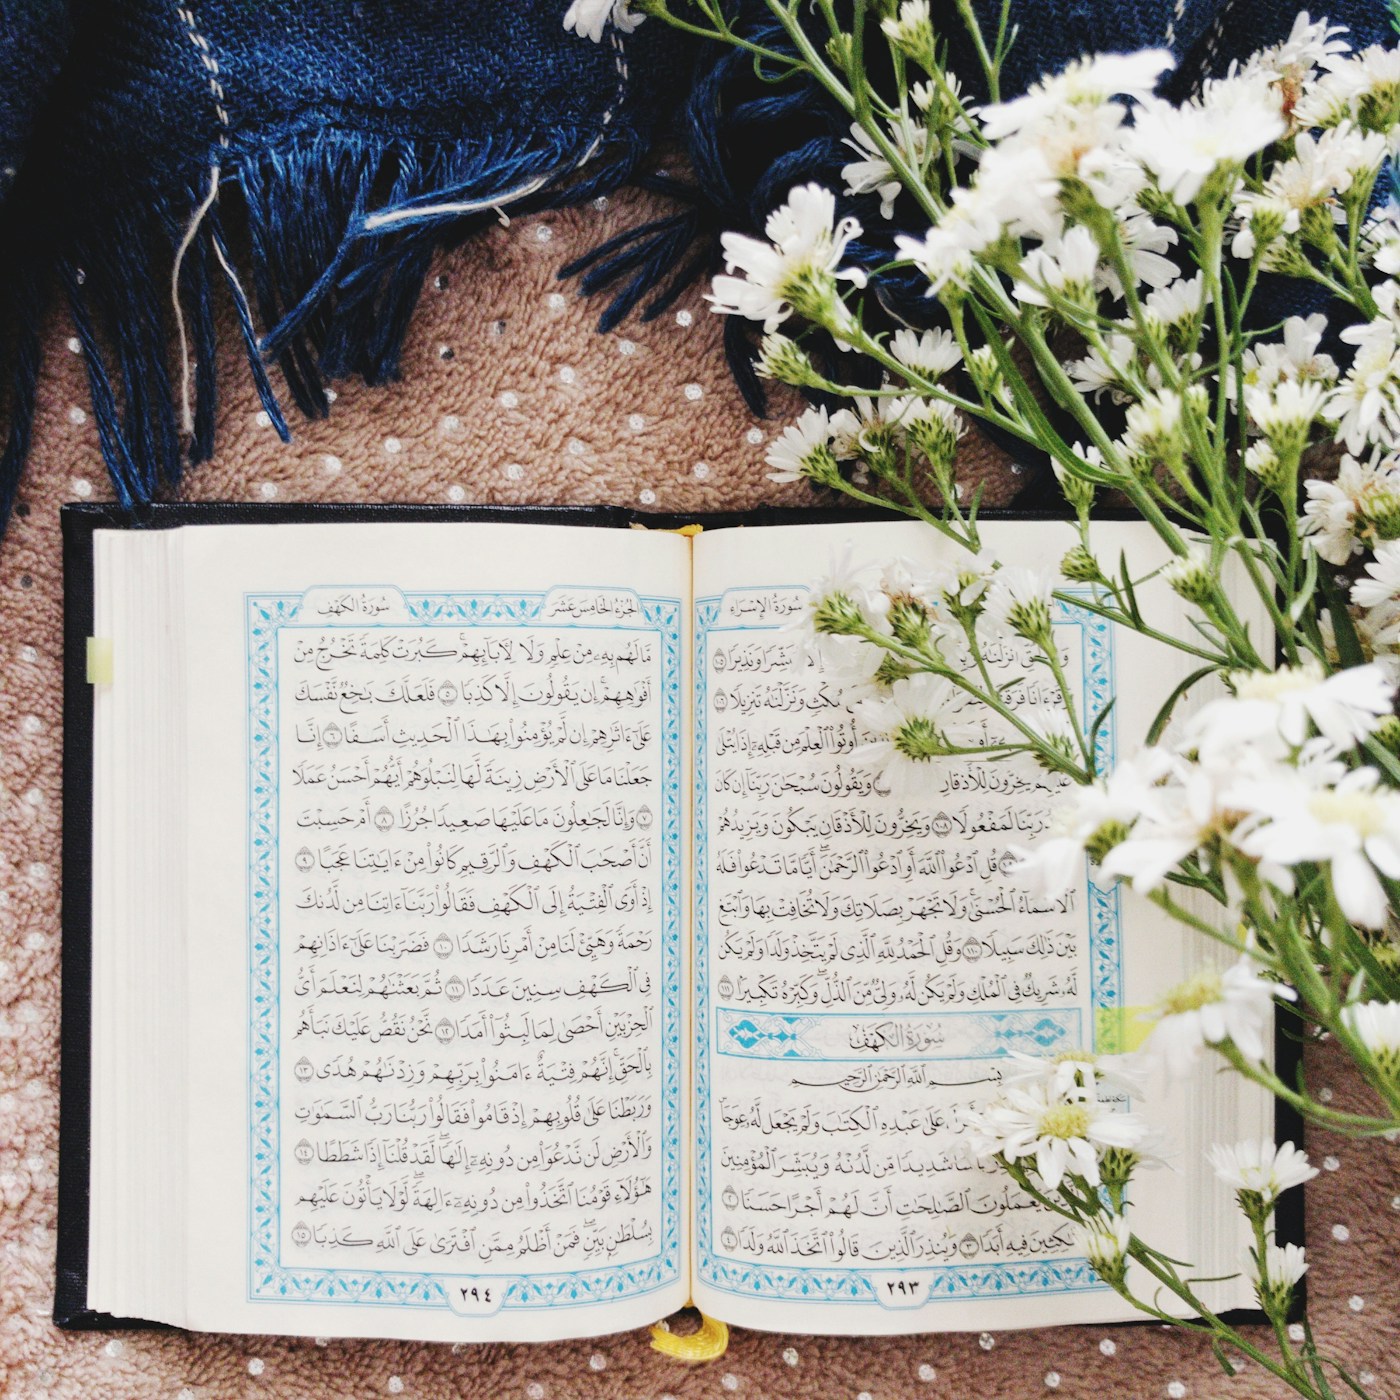 سُورَةُ الإِسْرَاءِ
إِلَّا مُبَشِّرًا وَنَذِيرًا ١٠٥
مُكْثٍ وَنَزَّلْنَٰهُ تَنزِيلًا ١٠٦
أُوتُوا۟ ٱلْعِلْمَ مِن قَبْلِهِۦٓ إِذَا يُتْلَىٰ
عَلَيْهِمْ يَخِرُّونَ لِلْأَذْقَانِ وَيَقُولُونَ سُبْحَٰنَ رَبِّنَآ إِن كَانَ
رَبِّنَا لَمَفْعُولًا ١٠٨ وَيَخِرُّونَ لِلْأَذْقَانِ يَبْكُونَ وَيَزِيدُهُمْ
قُلِ ٱدْعُوا۟ ٱللَّهَ أَوِ ٱدْعُوا۟ ٱلرَّحْمَٰنَ ۖ أَيًّا مَّا تَدْعُوا۟ فَلَهُ
ٱلْأَسْمَآءُ ٱلْحُسْنَىٰ ۚ وَلَا تَجْهَرْ بِصَلَاتِكَ وَلَا تُخَافِتْ بِهَا وَٱبْتَغِ
بَيْنَ ذَٰلِكَ سَبِيلًا ١١٠ وَقُلِ ٱلْحَمْدُ لِلَّهِ ٱلَّذِى لَمْ يَتَّخِذْ وَلَدًا وَلَمْ يَكُن
لَّهُۥ شَرِيكٌ فِى ٱلْمُلْكِ وَلَمْ يَكُن لَّهُۥ وَلِىٌّ مِّنَ ٱلذُّلِّ ۖ وَكَبِّرْهُ تَكْبِيرًۢا ١١١
سُورَةُ الكَهْفِ
بِسْمِ ٱللَّهِ ٱلرَّحْمَٰنِ ٱلرَّحِيمِ
عَلَىٰ عَبْدِهِ ٱلْكِتَٰبَ وَلَمْ يَجْعَل لَّهُۥ عِوَجَا
شَدِيدًا مِّن لَّدُنْهُ وَيُبَشِّرَ ٱلْمُؤْمِنِينَ
يَعْمَلُونَ ٱلصَّٰلِحَٰتِ أَنَّ لَهُمْ أَجْرًا حَسَنًا ٢
مَّٰكِثِينَ فِيهِ أَبَدًا ٣ وَيُنذِرَ ٱلَّذِينَ قَالُوا۟ ٱتَّخَذَ ٱللَّهُ وَلَدًا ٤
٢٩٣
الجُزْءُ الخَامِسَ عَشَرَ
سُورَةُ الكَهْفِ
مَّا لَهُم بِهِۦ مِنْ عِلْمٍ وَلَا لِءَابَآئِهِمْ ۚ كَبُرَتْ كَلِمَةً تَخْرُجُ مِنْ
أَفْوَٰهِهِمْ ۚ إِن يَقُولُونَ إِلَّا كَذِبًا ٥ فَلَعَلَّكَ بَٰخِعٌ نَّفْسَكَ
عَلَىٰٓ ءَاثَٰرِهِمْ إِن لَّمْ يُؤْمِنُوا۟ بِهَٰذَا ٱلْحَدِيثِ أَسَفًا ٦ إِنَّا
جَعَلْنَا مَا عَلَى ٱلْأَرْضِ زِينَةً لَّهَا لِنَبْلُوَهُمْ أَيُّهُمْ أَحْسَنُ عَمَلًا
٧ وَإِنَّا لَجَٰعِلُونَ مَا عَلَيْهَا صَعِيدًا جُرُزًا ٨ أَمْ حَسِبْتَ
أَنَّ أَصْحَٰبَ ٱلْكَهْفِ وَٱلرَّقِيمِ كَانُوا۟ مِنْ ءَايَٰتِنَا عَجَبًا ٩
إِذْ أَوَى ٱلْفِتْيَةُ إِلَى ٱلْكَهْفِ فَقَالُوا۟ رَبَّنَآ ءَاتِنَا مِن لَّدُنكَ
رَحْمَةً وَهَيِّئْ لَنَا مِنْ أَمْرِنَا رَشَدًا ١٠ فَضَرَبْنَا عَلَىٰٓ ءَاذَانِهِمْ
فِى ٱلْكَهْفِ سِنِينَ عَدَدًا ١١ ثُمَّ بَعَثْنَٰهُمْ لِنَعْلَمَ أَىُّ
ٱلْحِزْبَيْنِ أَحْصَىٰ لِمَا لَبِثُوٓا۟ أَمَدًا ١٢ نَّحْنُ نَقُصُّ عَلَيْكَ نَبَأَهُم
بِٱلْحَقِّ ۚ إِنَّهُمْ فِتْيَةٌ ءَامَنُوا۟ بِرَبِّهِمْ وَزِدْنَٰهُمْ هُدًى ١٣
وَرَبَطْنَا عَلَىٰ قُلُوبِهِمْ إِذْ قَامُوا۟ فَقَالُوا۟ رَبُّنَا رَبُّ ٱلسَّمَٰوَٰتِ
وَٱلْأَرْضِ لَن نَّدْعُوَا۟ مِن دُونِهِۦٓ إِلَٰهًا ۖ لَّقَدْ قُلْنَآ إِذًا شَطَطًا ١٤
هَٰٓؤُلَآءِ قَوْمُنَا ٱتَّخَذُوا۟ مِن دُونِهِۦٓ ءَالِهَةً ۖ لَّوْلَا يَأْتُونَ عَلَيْهِم
بِسُلْطَٰنٍۭ بَيِّنٍ ۖ فَمَنْ أَظْلَمُ مِمَّنِ ٱفْتَرَىٰ عَلَى ٱللَّهِ كَذِبًا ١٥
٢٩٤